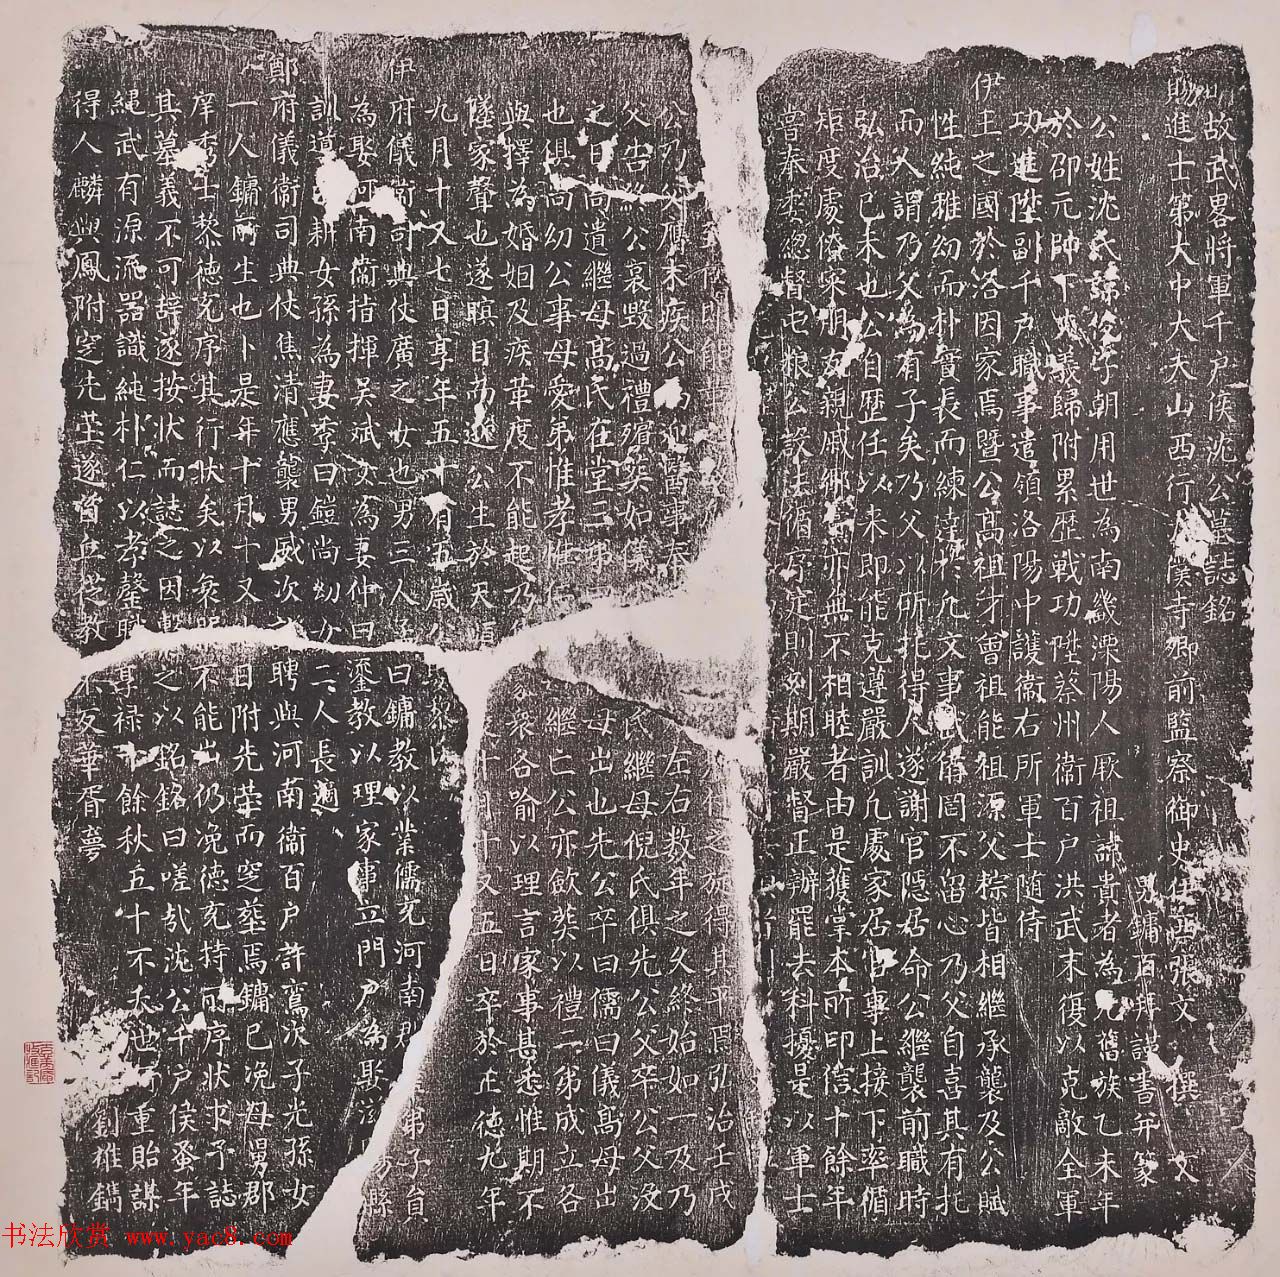 明故武畧將軍千户侯沈公墓誌銘
賜進士第大中大夫山西行太僕寺卿前監察御史仕西張文 撰文
男鏞百拜謹書并篆
公姓沈氏諱俊字朝用世為南畿溧陽人厥祖諱貴者為元舊族乙未年
於邵元帥下、義歸附累歷戰功陞蔡州衛百户洪武末復以克敵全軍
功進陞副千户職事遣領洛陽中護衛右所軍士随侍
伊王之國於洛因家焉暨公高祖才曾祖能祖源父粽皆相繼承襲及公賦
性純雅幼而朴實長而練達於凡文事武備罔不留心乃父自喜其有托
而人謂乃父為有子矣乃父以所托得人遂謝官隱居命公繼襲前職時
弘治己未也公自歷任以来即能克遵嚴訓凡處家居官事上接下率循
矩度處僚寀朋友親戚鄉亦無不相睦者由是獲掌本所印信十餘年
嘗奉委總督屯粮公設法循序定則刻期嚴督正辦罷去科擾是以軍士
得之旋得其平焉弘治壬戌
公乃父膺末疾公為迎醫事奉左右数年之久終始如一及乃
父告終公哀毀過禮殯葬如儀氏繼母倪氏俱先公父卒公父没
之日尚遺繼母高氏在堂三弟母出也先公卒曰儒曰儀高母出
也俱尚幼公事母愛弟惟孝惟仁繼亡公亦歛葬以禮二弟成立各
與擇為婚姻及疾革度不能起乃衆各喻以理言家事甚悉惟期不
墜家聲也遂瞑目而逝公生於天順十月十又五日卒於正德九年
九月十又七日享年五十有五歲公娶黎氏
伊府儀衛司典仗廣之女也男三人曰鏞教以業儒充河南郡弟子員
為娶河南衛指揮吳斌女為妻仲曰鎏教以理家事立門户為娶滋縣
訓導耕女孫為妻季曰鎧尚幼女二人長適
鄭府儀衛司典仗焦清應襲男威次許聘與河南衛百户許鸞次子光孫女
一人鏞所生也卜是年十月十又日附先塋而窆葬焉鏞已浼母舅郡
庠秀士黎德充序其行狀矣以衰不能出仍浼德充持所序狀求予誌
其墓義不可辞遂按状而誌之因繫之以銘銘曰嗟哉沈公千户侯蚤年
繩武有源流器識純朴仁以孝罄賦享禄餘秋五十不夭世重貽謀
得人麟與鳳附窆先塋遂首丘從教不反華胥夢 劉雄鐫
书法欣赏 www.yac8.com